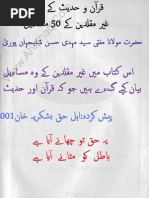 قرآن و حدیث کے
غیر مقلدین کے 50 م
حضرت مولانا مفتی سید مہدی حسن شاہجہاں پوریؒ
اس کتاب میں غیر مقلدین کے وہ مسائل
بیان کیے گئے ہیں جو کہ قرآن اور حدیث
پیش کردہ: اہل حق بشکریہ خان001
یہ حق تو چھانے آیا ہے
باطل کو مٹانے آیا ہے